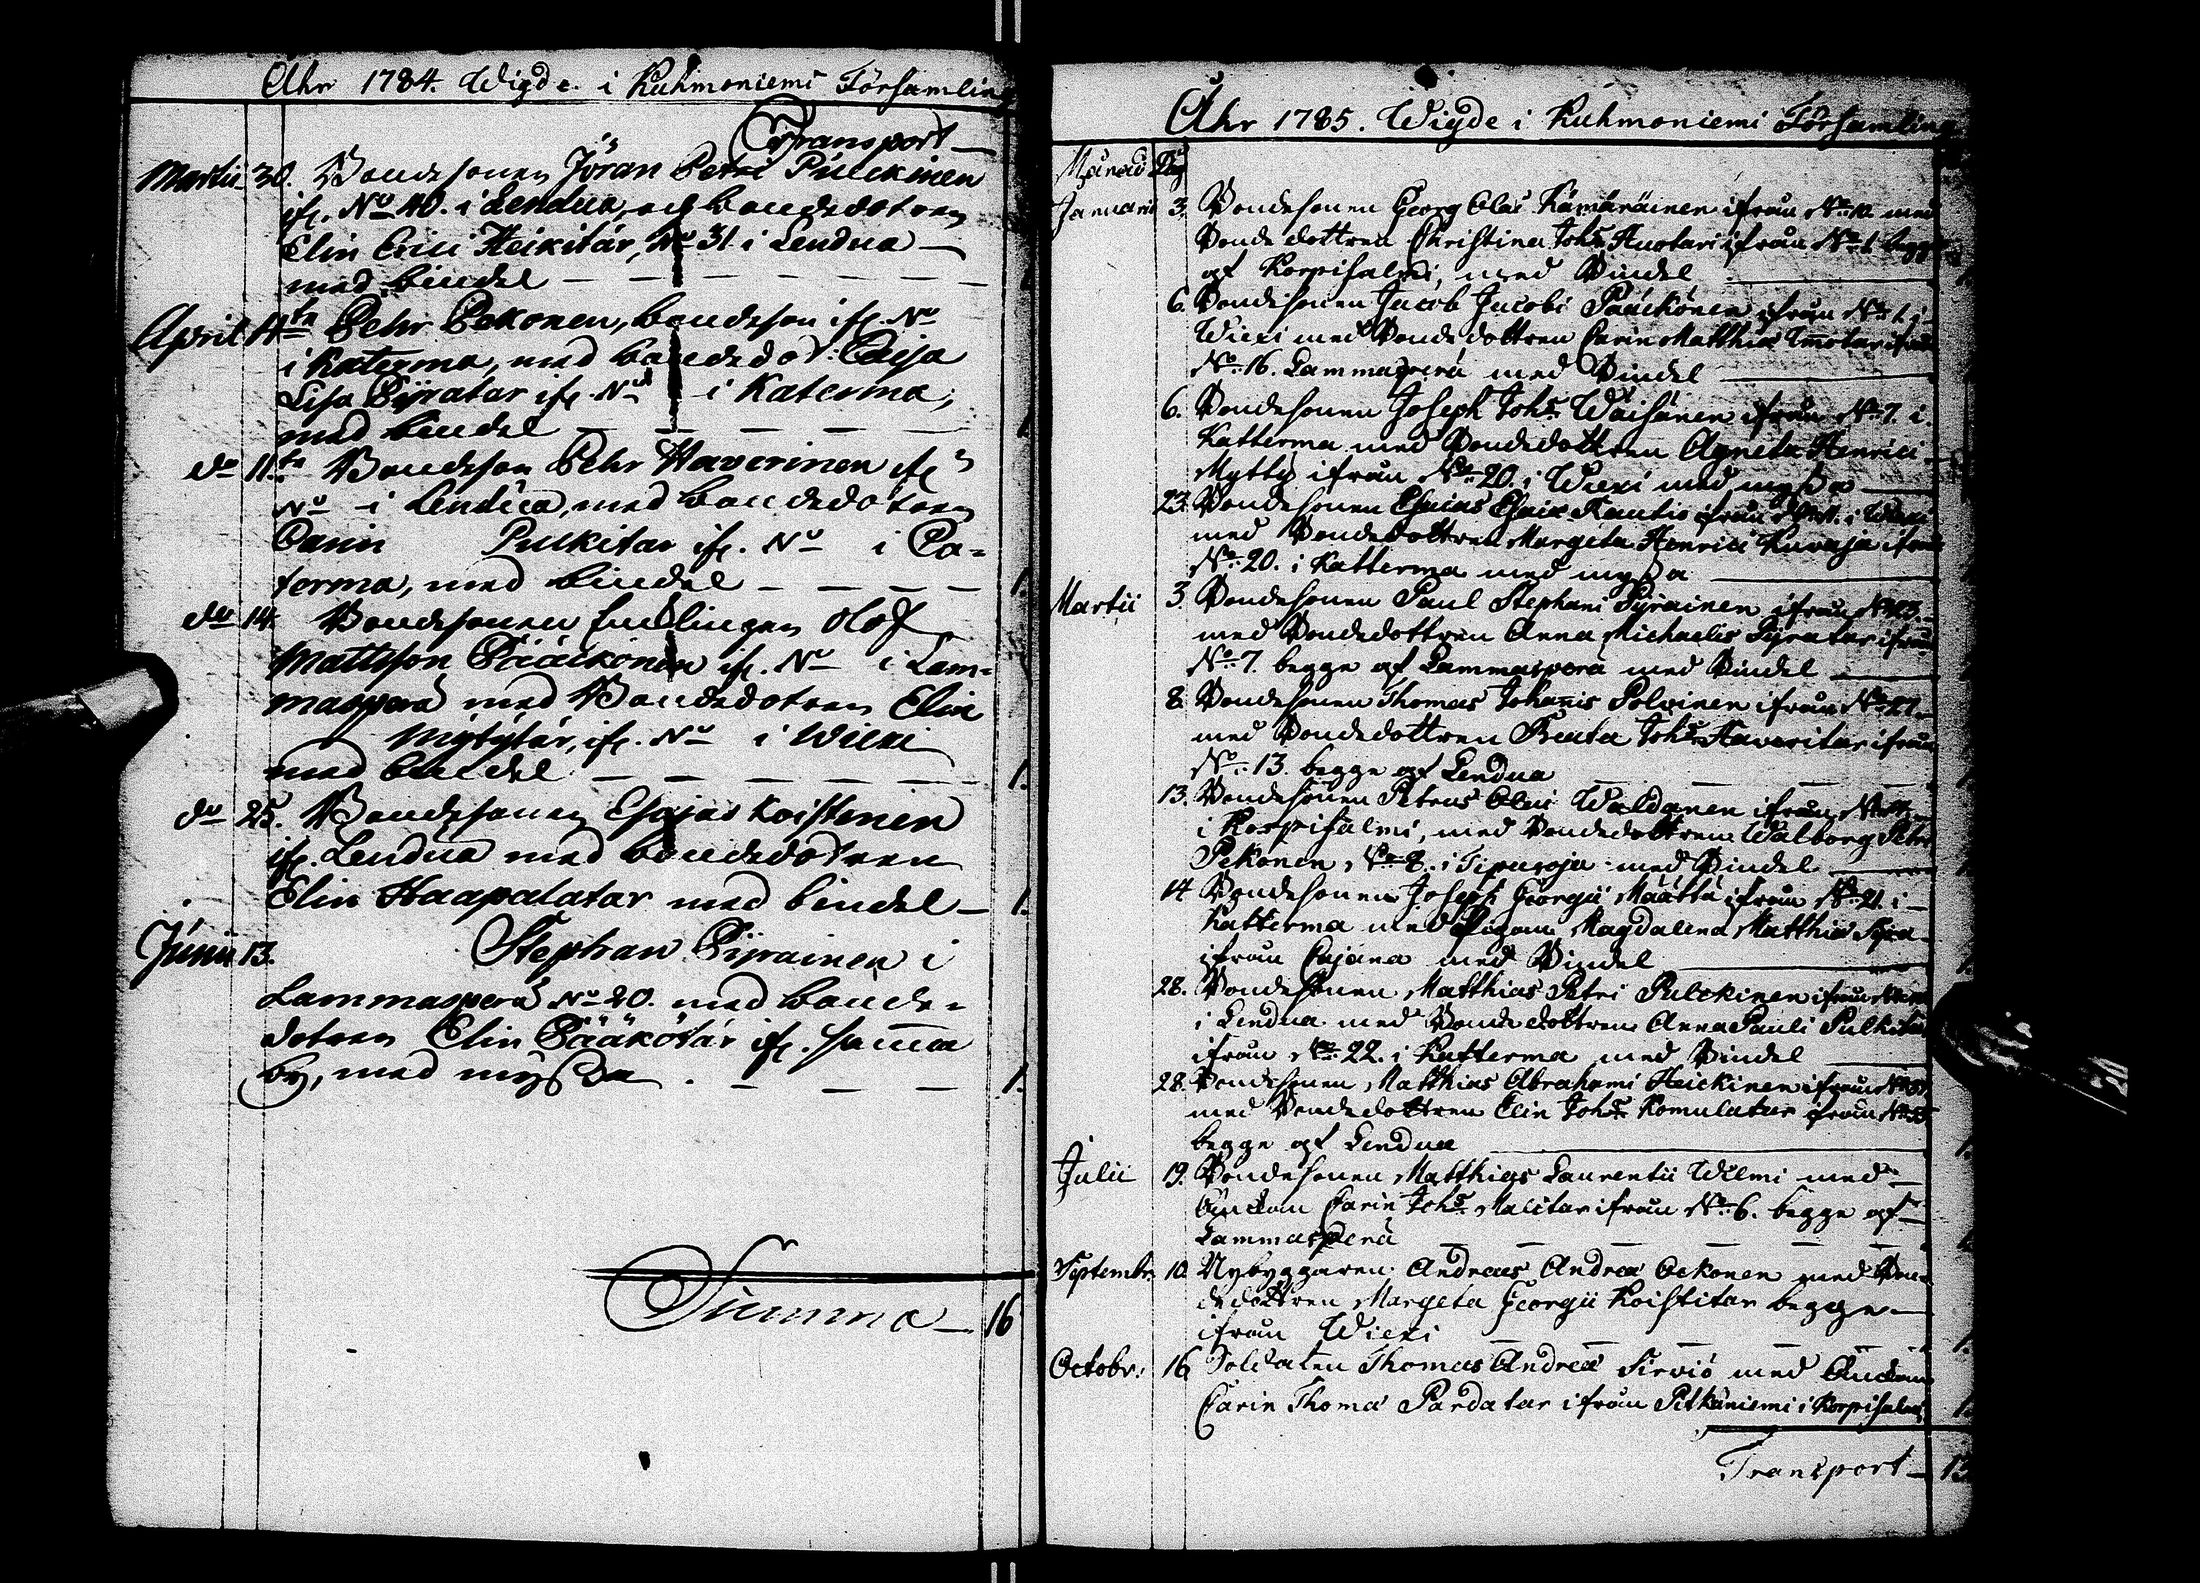 Åhr 1784. Wigde i Kuhmoniemi Församling
Transport —
Martii 30. Bondesonen Jöran Petri Pulckinen
ifr. No 40. i Lendua, och bondedotren
Elin Erici Heikitär, No 31 i Lendua —
med bindel — — — — — 1
April 4de Pehr Pekonen, bondeson ifr. No
i Katerma, med bondedot: Caisa
Lisa Pijratar ifr. No i Katerma,
med bindel — — — — — 1
do 11te Bondeson Pehr Haverinen ifr
No i Lendua, med bondedotren
Carin Pulkitar ifr. No i Ca-
terma, med bindel — — — — 1.
do 14. Bondesonen Enklingen Olof
Mattsson Pääckönen ifr. No i Lam-
maspera med Bondedotren Elin
Mytytär, ifr. No i Wiexi
med bindel — — — — — 1.
do 25. Bondesonen Esajas Koistinen
ifr. Lendua med bondedotren
Elin Haapalatar med bindel — 1.
Junii 13. Stephan Pijrainen i
Lammasperä No 20. med bonde-
dotren Elin Pääkötär ifr. samma
by, med mÿssa . — — — 1.
Summa — 16
Åhr 1785. Wigde i Kuhmoniemi Församling
Månad Dag
Januarii 3. Bondesonen Georg Olai Kämäräinen ifrån No 10 med
Bondedottren Christina Johs Huotari ifrån No 1 begge
af Korpisalmi, med Bindel
6. Bondesonen Jacob Jacobi Pääckönen ifrån No 1. i
Wiexi med Bondedottren Carin Matthiæ ifrån
No 16. Lammasperä med Bindel
6. Bondesonen Joseph Johs Wäisänen ifrån No 7. i
Katterma med Bondedottren Agneta Henrici
Mytty ifrån No 20. i Wiexi med myssa
23. Bondesonen Esaias Esaiæ Rautio ifrån i Wiexi
med Bondedottren Margeta Henrici Kuvaja ifrån
No 20. i Katterma med myssa
Martii 3. Bondesonen Paul Stephani Pyrainen ifrån No 23.
med Bondedottren Anna Michaelis Pyratar ifrån
No 7. begge af Lammasperä med Bindel
8. Bondesonen Thomas Johannis Polvinen ifrån No 27.
med Bondedottren Beata Johs Haveritar ifrån
No 13. begge af Lendua — — —
13. Bondesonen Petrus Olai Waldanen ifrån
i Korpisalmi, med Bondedottren Walborg Petri
Pekonen, No 8. i Tipasoja med Bindel
14 Bondesonen Joseph Georgii Määttä ifrån No 21. i
Katterma med Pigan Magdalena Matthiæ
ifrån Cajana med Bindel 1.
28. Bondesonen Matthias Petri Pulckinen ifrån
i Lendua med Bondedottren Anna Pauli Pulkitar
ifrån No 22. i Katterma med Bindel
28. Bondesonen Matthias Abrahami Heickinen ifrån
med Bondedottren Elin Johs Komulatar ifrån
begge af Lendua 1.
Julii 19. Bondesonen Matthias Laurentii Wilmi med
Änckan Carin Johs Malitar ifrån No 6. begge af
Lammasperä — — — — — —
Septembr. 10. Nybyggaren Andreas Andreæ Ockonen med Bon-
dedottren Margeta Georgii Koistitar begge
ifrån Wiexi — — — — 1.
Octobr. 16. Soldaten Thomas Andreæ Sirviö med Änckan
Carin Thomæ Pardatar ifrån Pitkäniemi i Korpisalmi 1.
Transport — 13